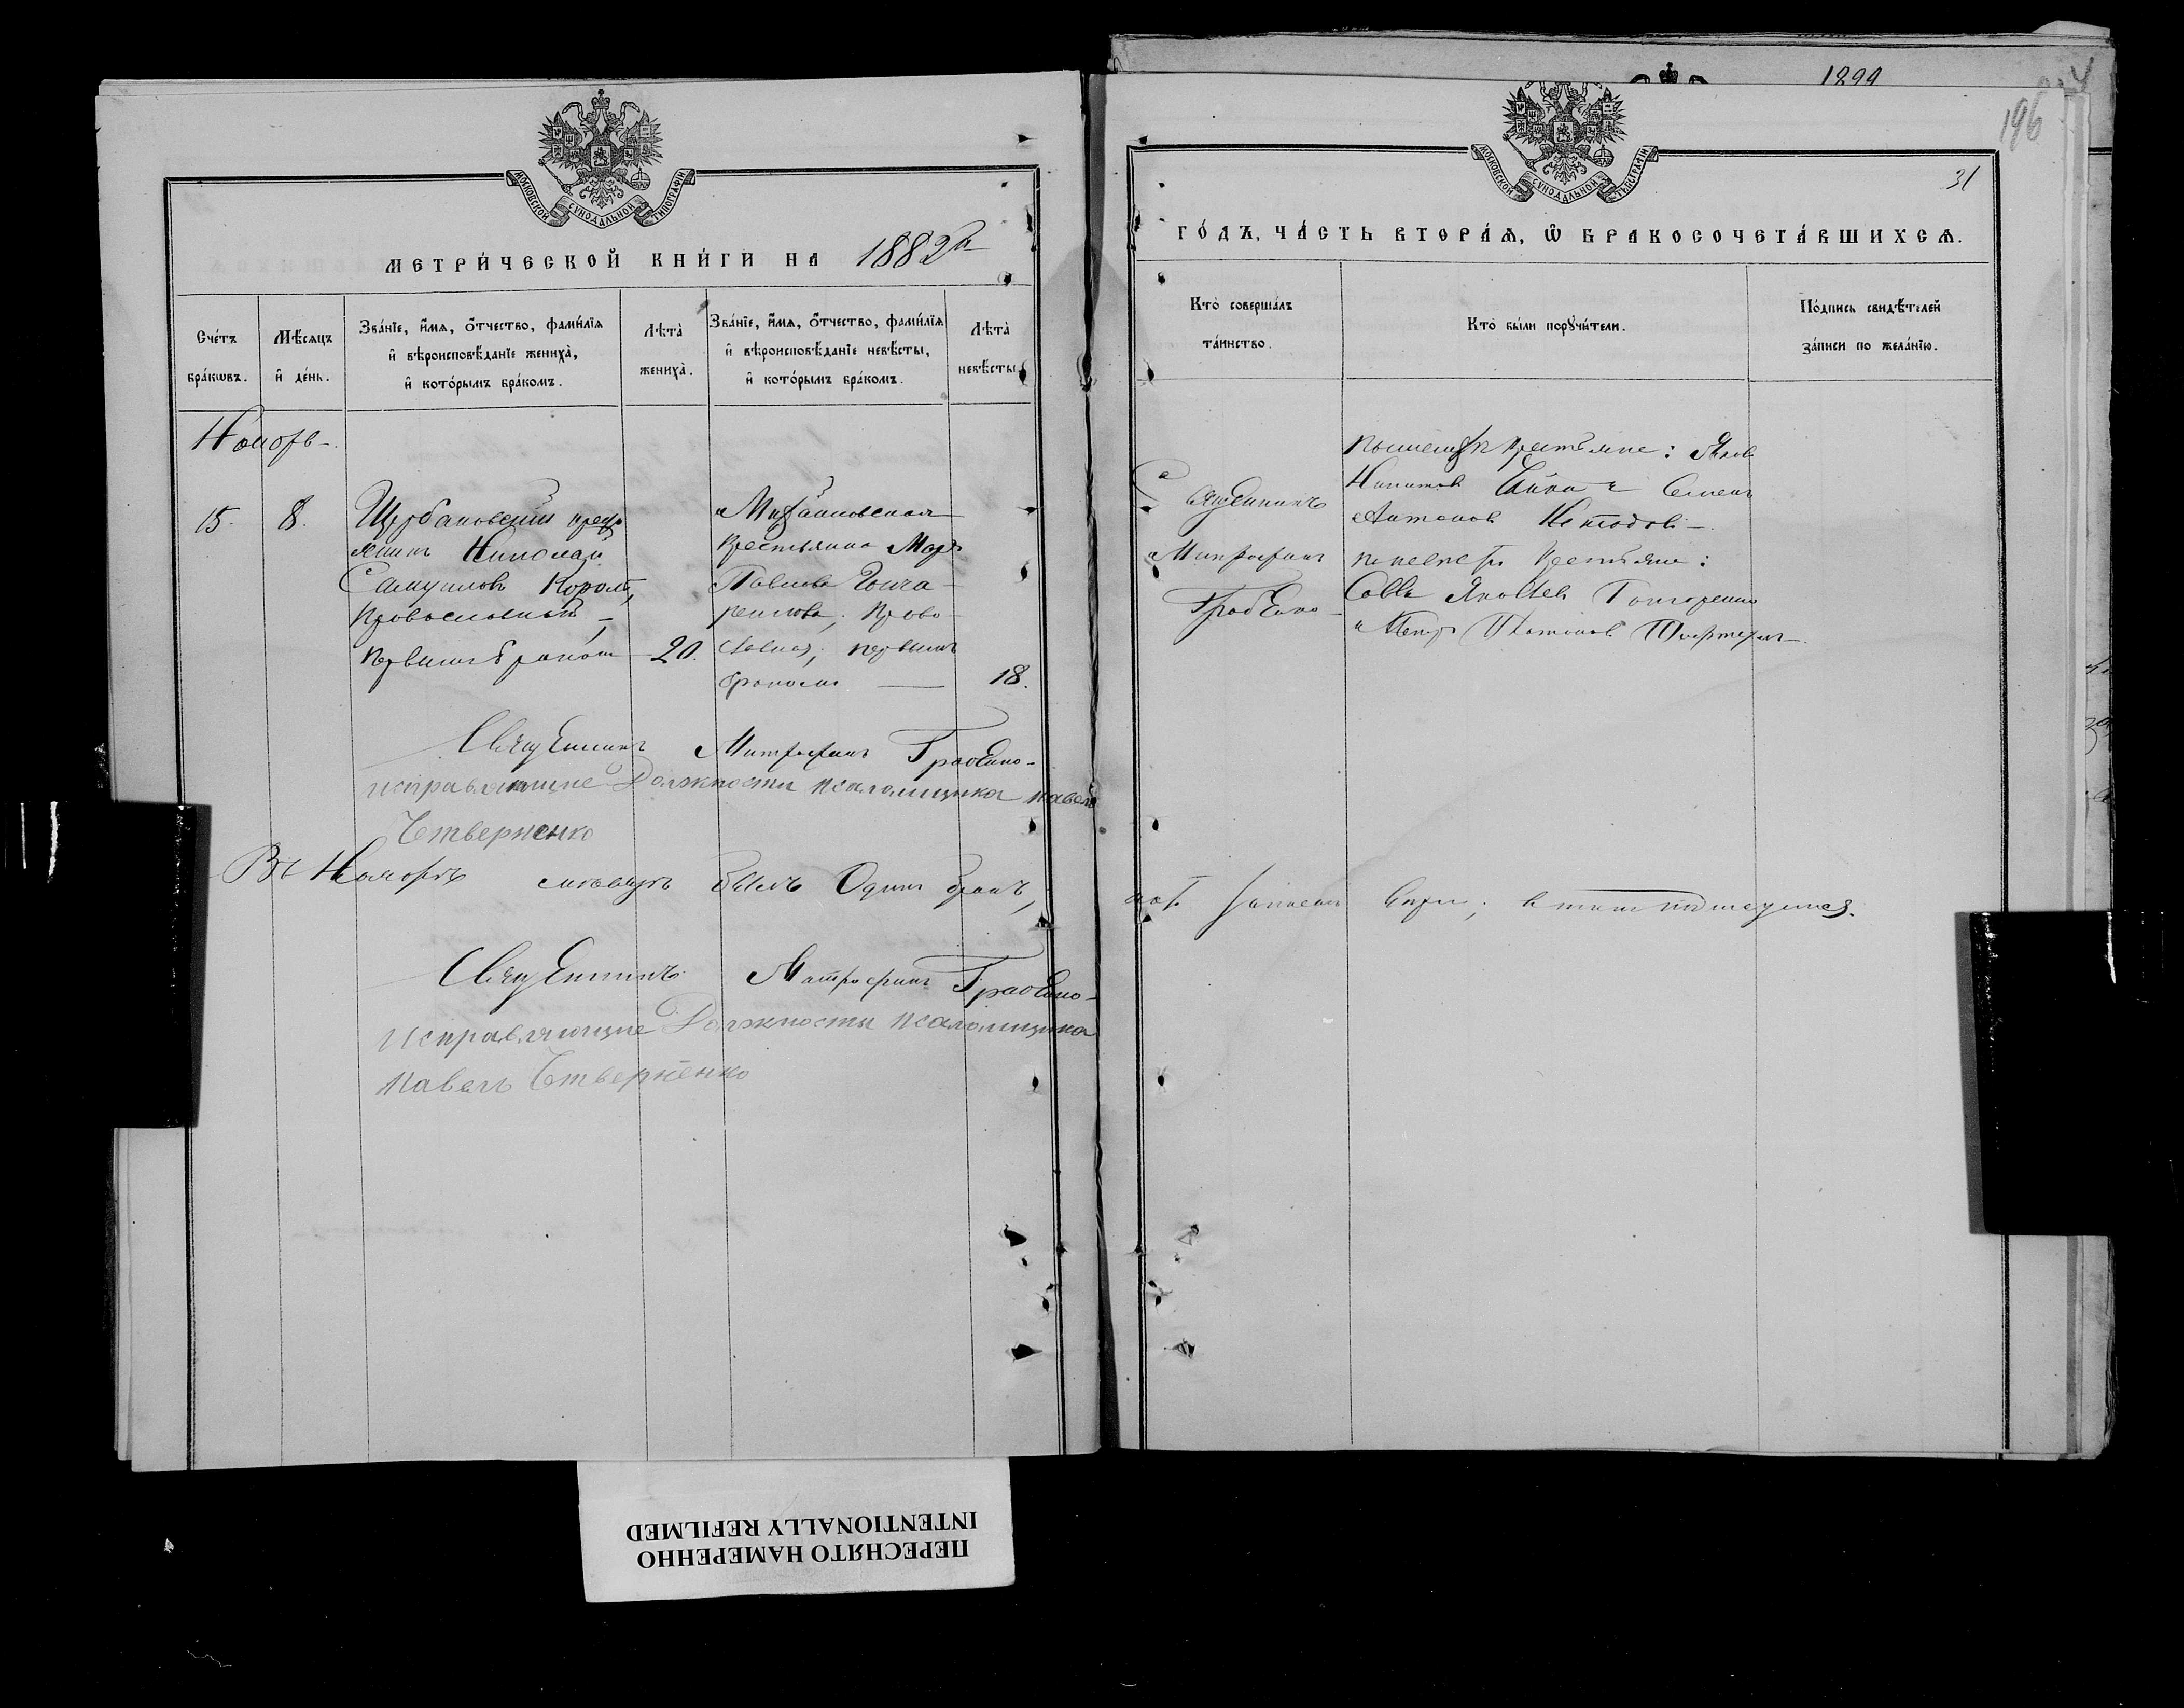 1899
196
МОСКОВСКОЙ СѴНОДАЛЬНОЙ ТИПОГРАФІИ
МЕТРИ́ЧЕСКОЙ КНИ́ГИ НА 1882й
Сче́тъ бра́кѡвъ.
Мѣ́сяцъ и҆ де́нь.
Зва́нїе, и҆́мѧ, ѻ҆́тчество, фами́лїѧ
и҆ вѣроисповѣ́данїе жениха̀,
и҆ кото́рымъ бра́комъ.
Лѣта̀ жениха̀.
Зва́нїе, и҆́мѧ, ѻ҆́тчество, фами́лїѧ
и҆ вѣроисповѣ́данїе невѣ́сты,
и҆ кото́рымъ бра́комъ.
Лѣта̀ невѣ́сты.
Ноябрь
15.
8.
Щербановский кресть
янинъ Николай
Самуиловъ Король,
Православный,
первымъ бракомъ
20.
Михайловская
Крестьянка Мар
Павлова Гонча
ренкова, Право
славная, первымъ
бракомъ
18.
Священникъ Митрофанъ Грабенко
исправляющие Должности псаломщика Павелъ
Четверненко
Въ Ноябрѣ мѣсяцѣ былъ Одинъ бракъ,
Священникъ Митрофанъ Грабенко
Исправляющие Должности псаломщика
Павелъ Четверненко
31
МОСКОВСКОЙ СѴНОДАЛЬНОЙ ТИПОГРАФІИ
ГО́ДЪ, ЧА́СТЬ ВТОРА́Ѧ, Ѡ҆ БРАКОСОЧЕТА́ВШИХСѦ.
Кто̀ соверша́лъ
та́инство.
Кто̀ бы́ли порꙋчи́тели.
По́дпись свидѣ́телей
за́писи по жела́нїю.
Священникъ
Митрофанъ
Грабенко
По женихѣ Крестьяне: Яковъ
Никитовъ Чайка и Семенъ
Антоновъ
По невѣстѣ Крестьяне:
Савва Яковлевъ Гончаренко
и Петръ Платоновъ
ПЕРЕСНЯТО НАМЕРЕННО
INTENTIONALLY REFILMED